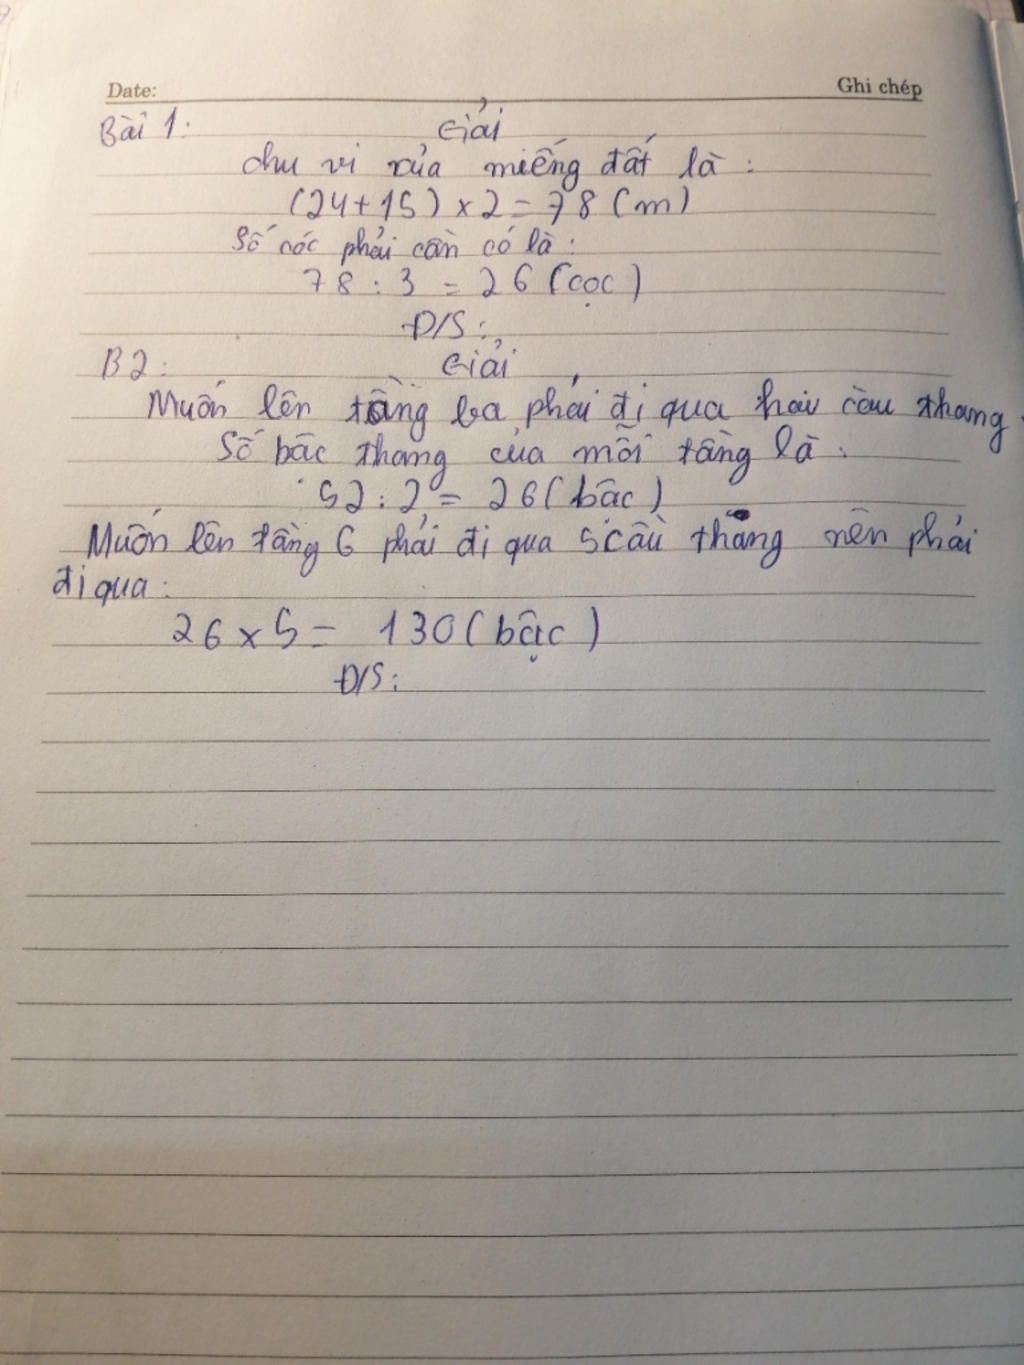 Date: Ghi chép
Bài 1: Giải
chu vi của miếng đất là :
(24+15) × 2 = 78 (m)
Số cóc phải cần có là :
78 : 3 = 26 (cọc)
Đ/S :
B2 : Giải
Muốn lên tầng ba phải đi qua hai cầu thang.
Số bấc thang của mỗi tầng là :
52 : 2 = 26 (bấc)
Muốn lên tầng 6 phải đi qua 5 cầu thang nên phải
đi qua :
26 × 5 = 130 (bậc)
Đ/S :